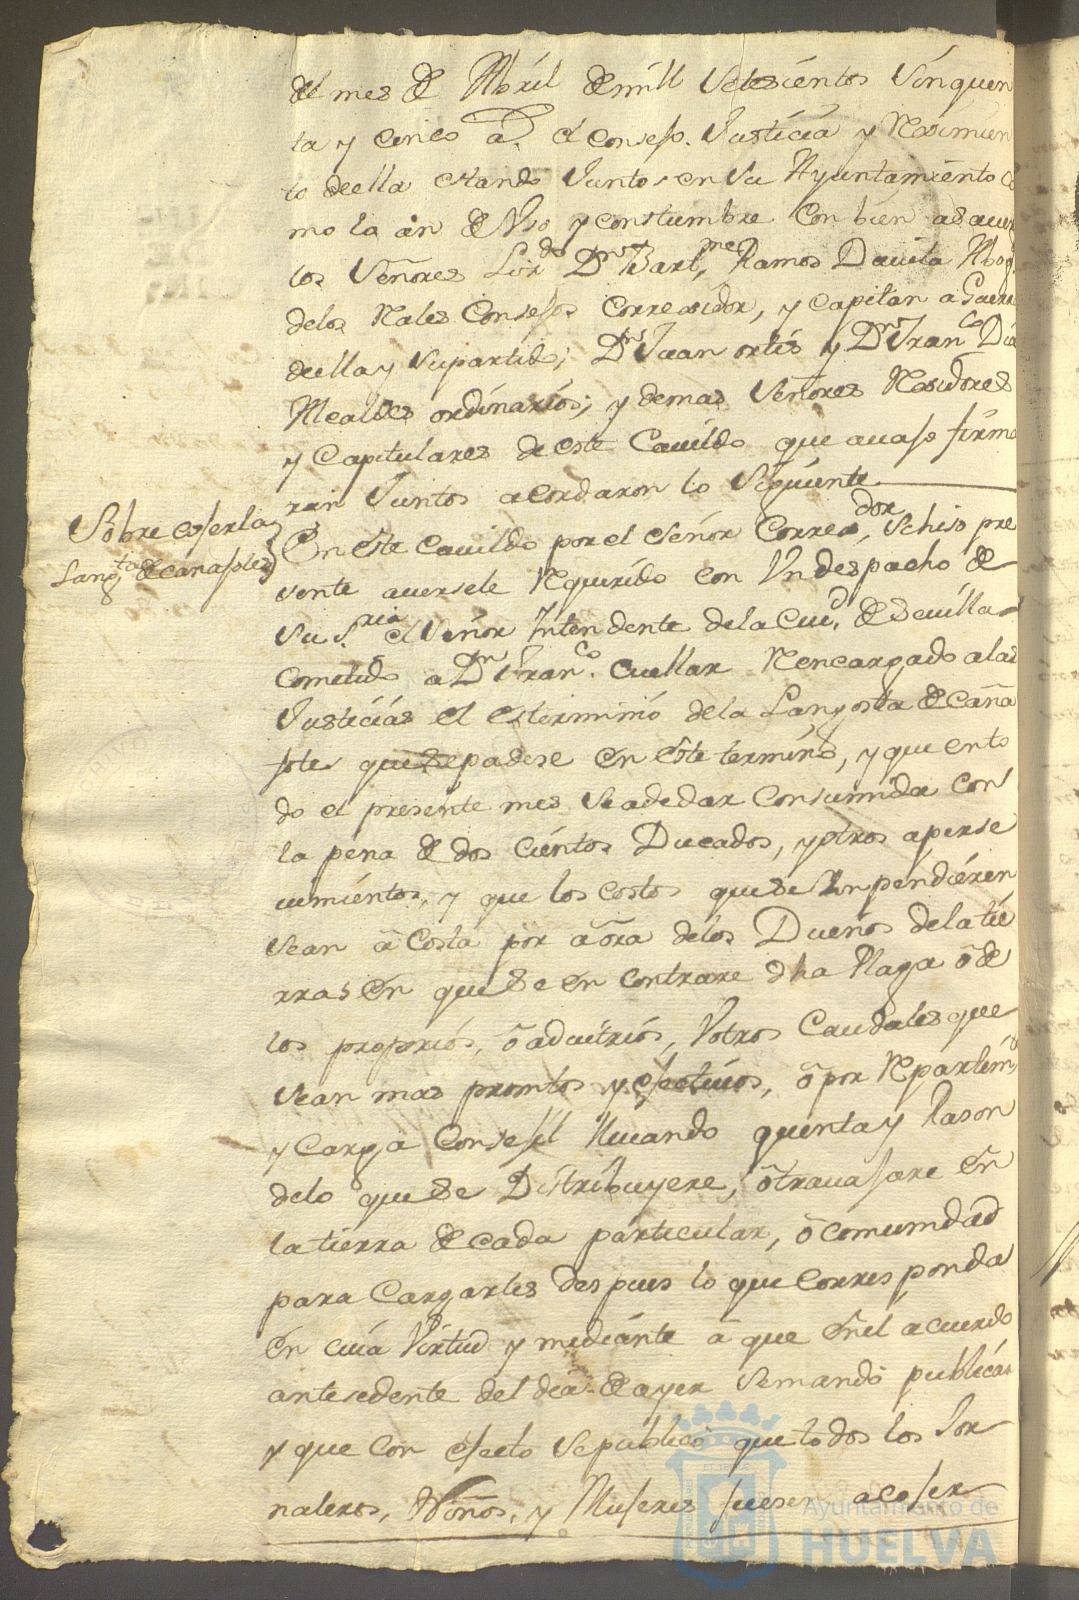 del mes de Abril de mill setesientos sinquen
ta y cinco as. el consejo, Justicia y Reximien
to de ella estando Juntos en su Ayuntamiento co
mo la an de Uso y constumbre con bien a saver
los Señores Lizdo Dn Bartme Ramos Davila Abog
delos Rales Consejos Correxidor, y Capitan a Guerra
de ella y su partido; Dn Juan ortis y Dn Franco Dia
Alcaldes ordinarios; y demas Señores Rexidores
y Capitulares de este Cavildo que avajo firma
ran Juntos acordaron lo Siguiente
Sobre coser la
Langta de cañafotes
En este cavildo por el señor Corredor, se hiso pre
sente aversele Requerido con Un despacho de
su Sria el Señor Intendente dela Ciud. de Sevilla
cometido a Dn Franco. Cuellar Rencargado alas
Justicias el esterminio dela Langosta de caña
fotes que se padese en este termino, y que en to
do el presente mes se a de dar Consumida con
la pena de dos cientos Ducados, y otros aperse
vimientos, y que los costos que se Impendieren
sean a Costa por aora delos Dueños dela tie
rras en que se en contrare dha Plaga o de
los proprios, o advitrios, Votros Caudales que
sean mas promtos y efectivos, o por Repartimto
y Carga Consejil llevando quenta y Rason
delo que se Distribuyere, o travajare en
la tierra de cada particular, o comunidad
para Cargarles despues lo que corresponda
en cuia Virtud y mediante a que en el acuerdo
antesedente del dia de ayer se mando publicar
y que con efecto se publico que todos los Jor
naleros, Niños, y Mujeres fuesen a cojer
Ayuntamiento de
HUELVA